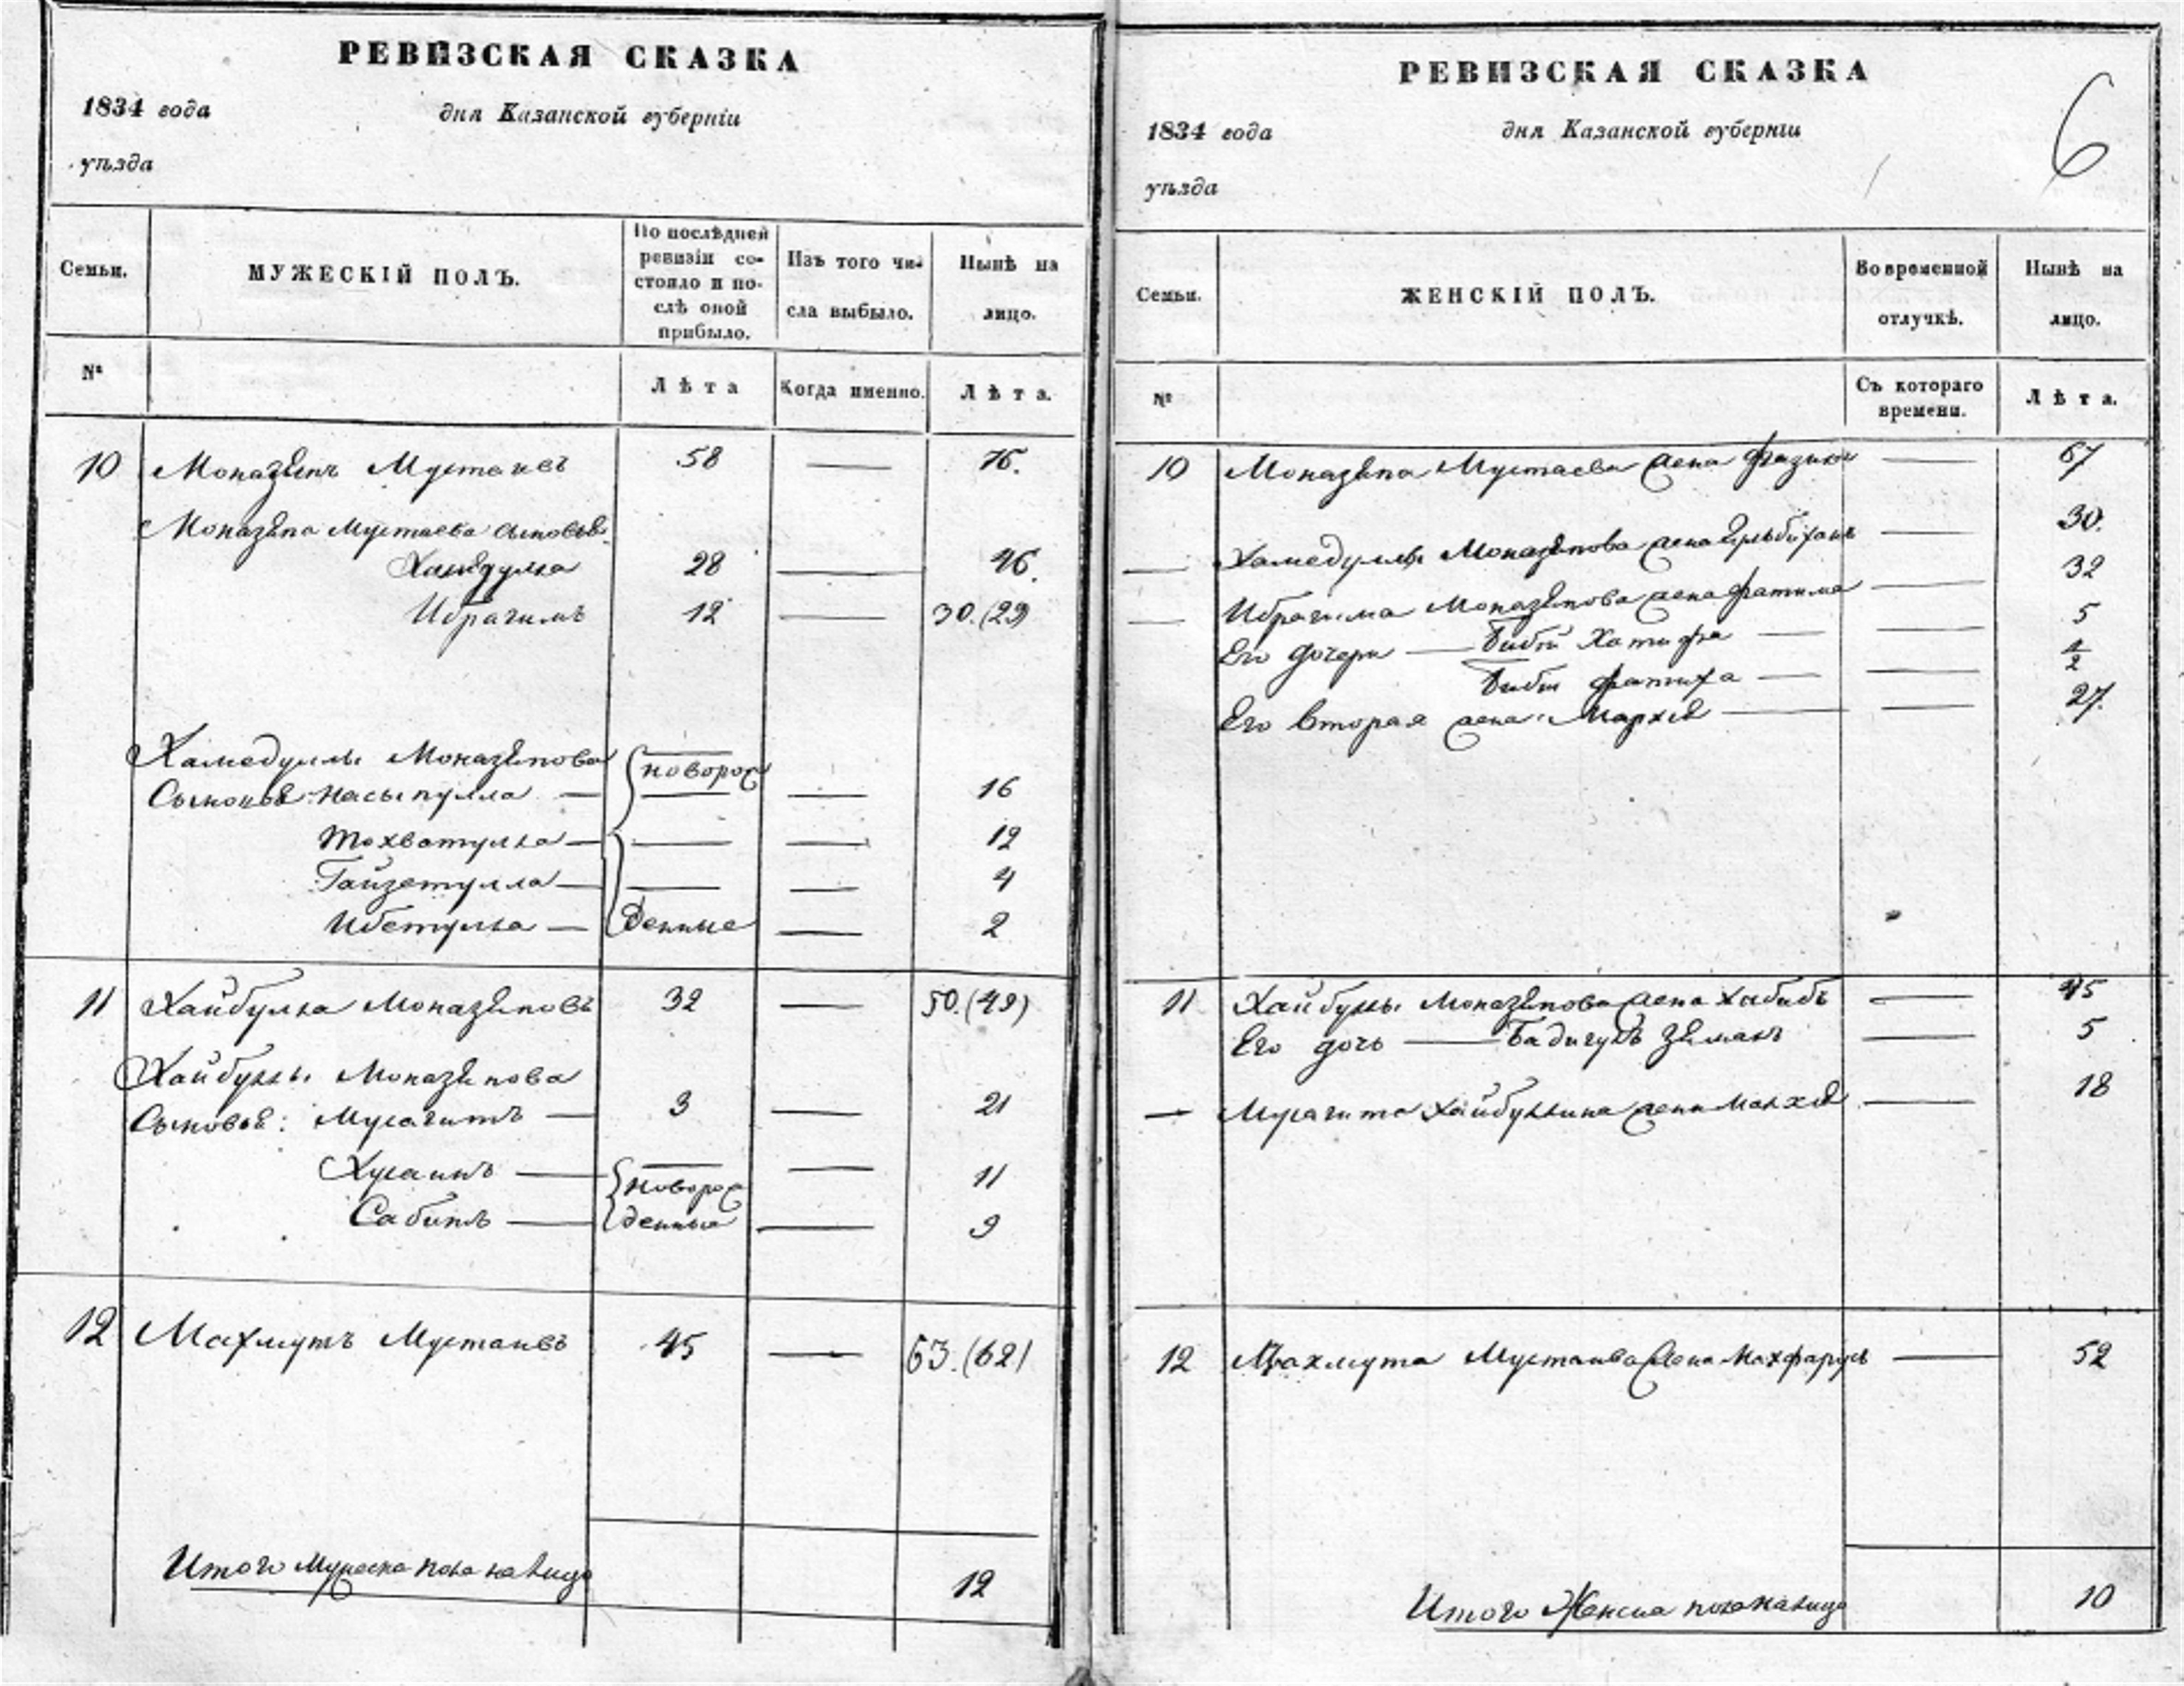 РЕВИЗСКАЯ СКАЗКА
1834 года дня Казанской губерніи
уѣзда
Семьи. МУЖЕСКІЙ ПОЛЪ. По послѣдней ревизіи состояло и послѣ оной прибыло. Изъ того числа выбыло. Нынѣ на лицо.
№ Лѣта Когда именно. Лѣта.
10 Моназѣпъ Мустаевъ 58 — 76.
Моназѣпа Мустаева сыновья
Хамѣдулла 28 — 46.
Ибрагимъ 12 — 30.(29)
Хамедуллы Моназѣпова новорож
Сыновья: Насыпулла — — — 16
Тохватулла — — — 12
Гайзетулла — — — 4
Ибетулла — денные — 2
11 Хайбулла Моназѣповъ 32 — 50.(49)
Хайбуллы Моназѣпова
Сыновья: Мусагитъ — 3 — 21
Хусаинъ — новорож — 11
Сабитъ — денные — 9
12 Махмутъ Мустаивъ 45 — 63.(62)
Итого Мужеска пола налицо 12
РЕВИЗСКАЯ СКАЗКА
6
1834 года дня Казанской губерніи
уѣзда
Семьи. ЖЕНСКІЙ ПОЛЪ. Во временной отлучкѣ. Нынѣ на лицо.
№ Съ котораго времени. Лѣта.
10 Моназѣпа Мустаева жена — 67
— Хамедуллы Моназѣпова жена — 30.
— Ибрагима Моназѣпова жена Фатима — 32
Его дочери — Биби Хатифа — — 5
Биби Фатиха — — 1/2
Его вторая жена — — 27.
11 Хайбуллы Моназѣпова жена Хабибъ — 45
Его дочь — Бадигулъ Зѣманъ — 5
— Мусагита Хайбуллина жена — 18
12 Махмута Мустаива жена — 52
Итого Женска пола налицо 10